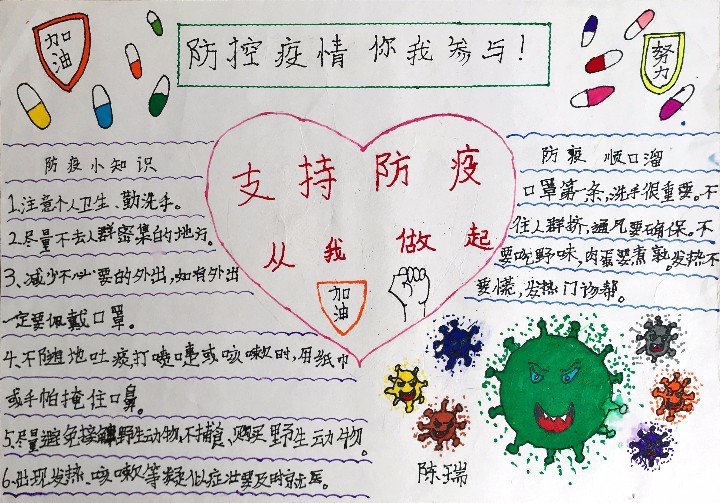 加油
防控疫情你我参与!
努力
防疫小知识
1.注意个人卫生、勤洗手。
2.尽量不去人群密集的地方。
3、减少不必要的外出,如有外出
一定要佩戴口罩。
4、不随地吐痰,打喷嚏或咳嗽时,用纸巾
或手帕掩住口鼻。
5.尽量避免接触野生动物,不捕食、购买野生动物。
6.出现发热、咳嗽等疑似症状要及时就医。
支持防疫
从我做起
加油
防疫 顺口溜
口罩第一条,洗手很重要。不
往人群挤,通风要确保。不
要吃野味,肉蛋要煮熟。发热不
要慌,发热门诊帮。
陈瑞